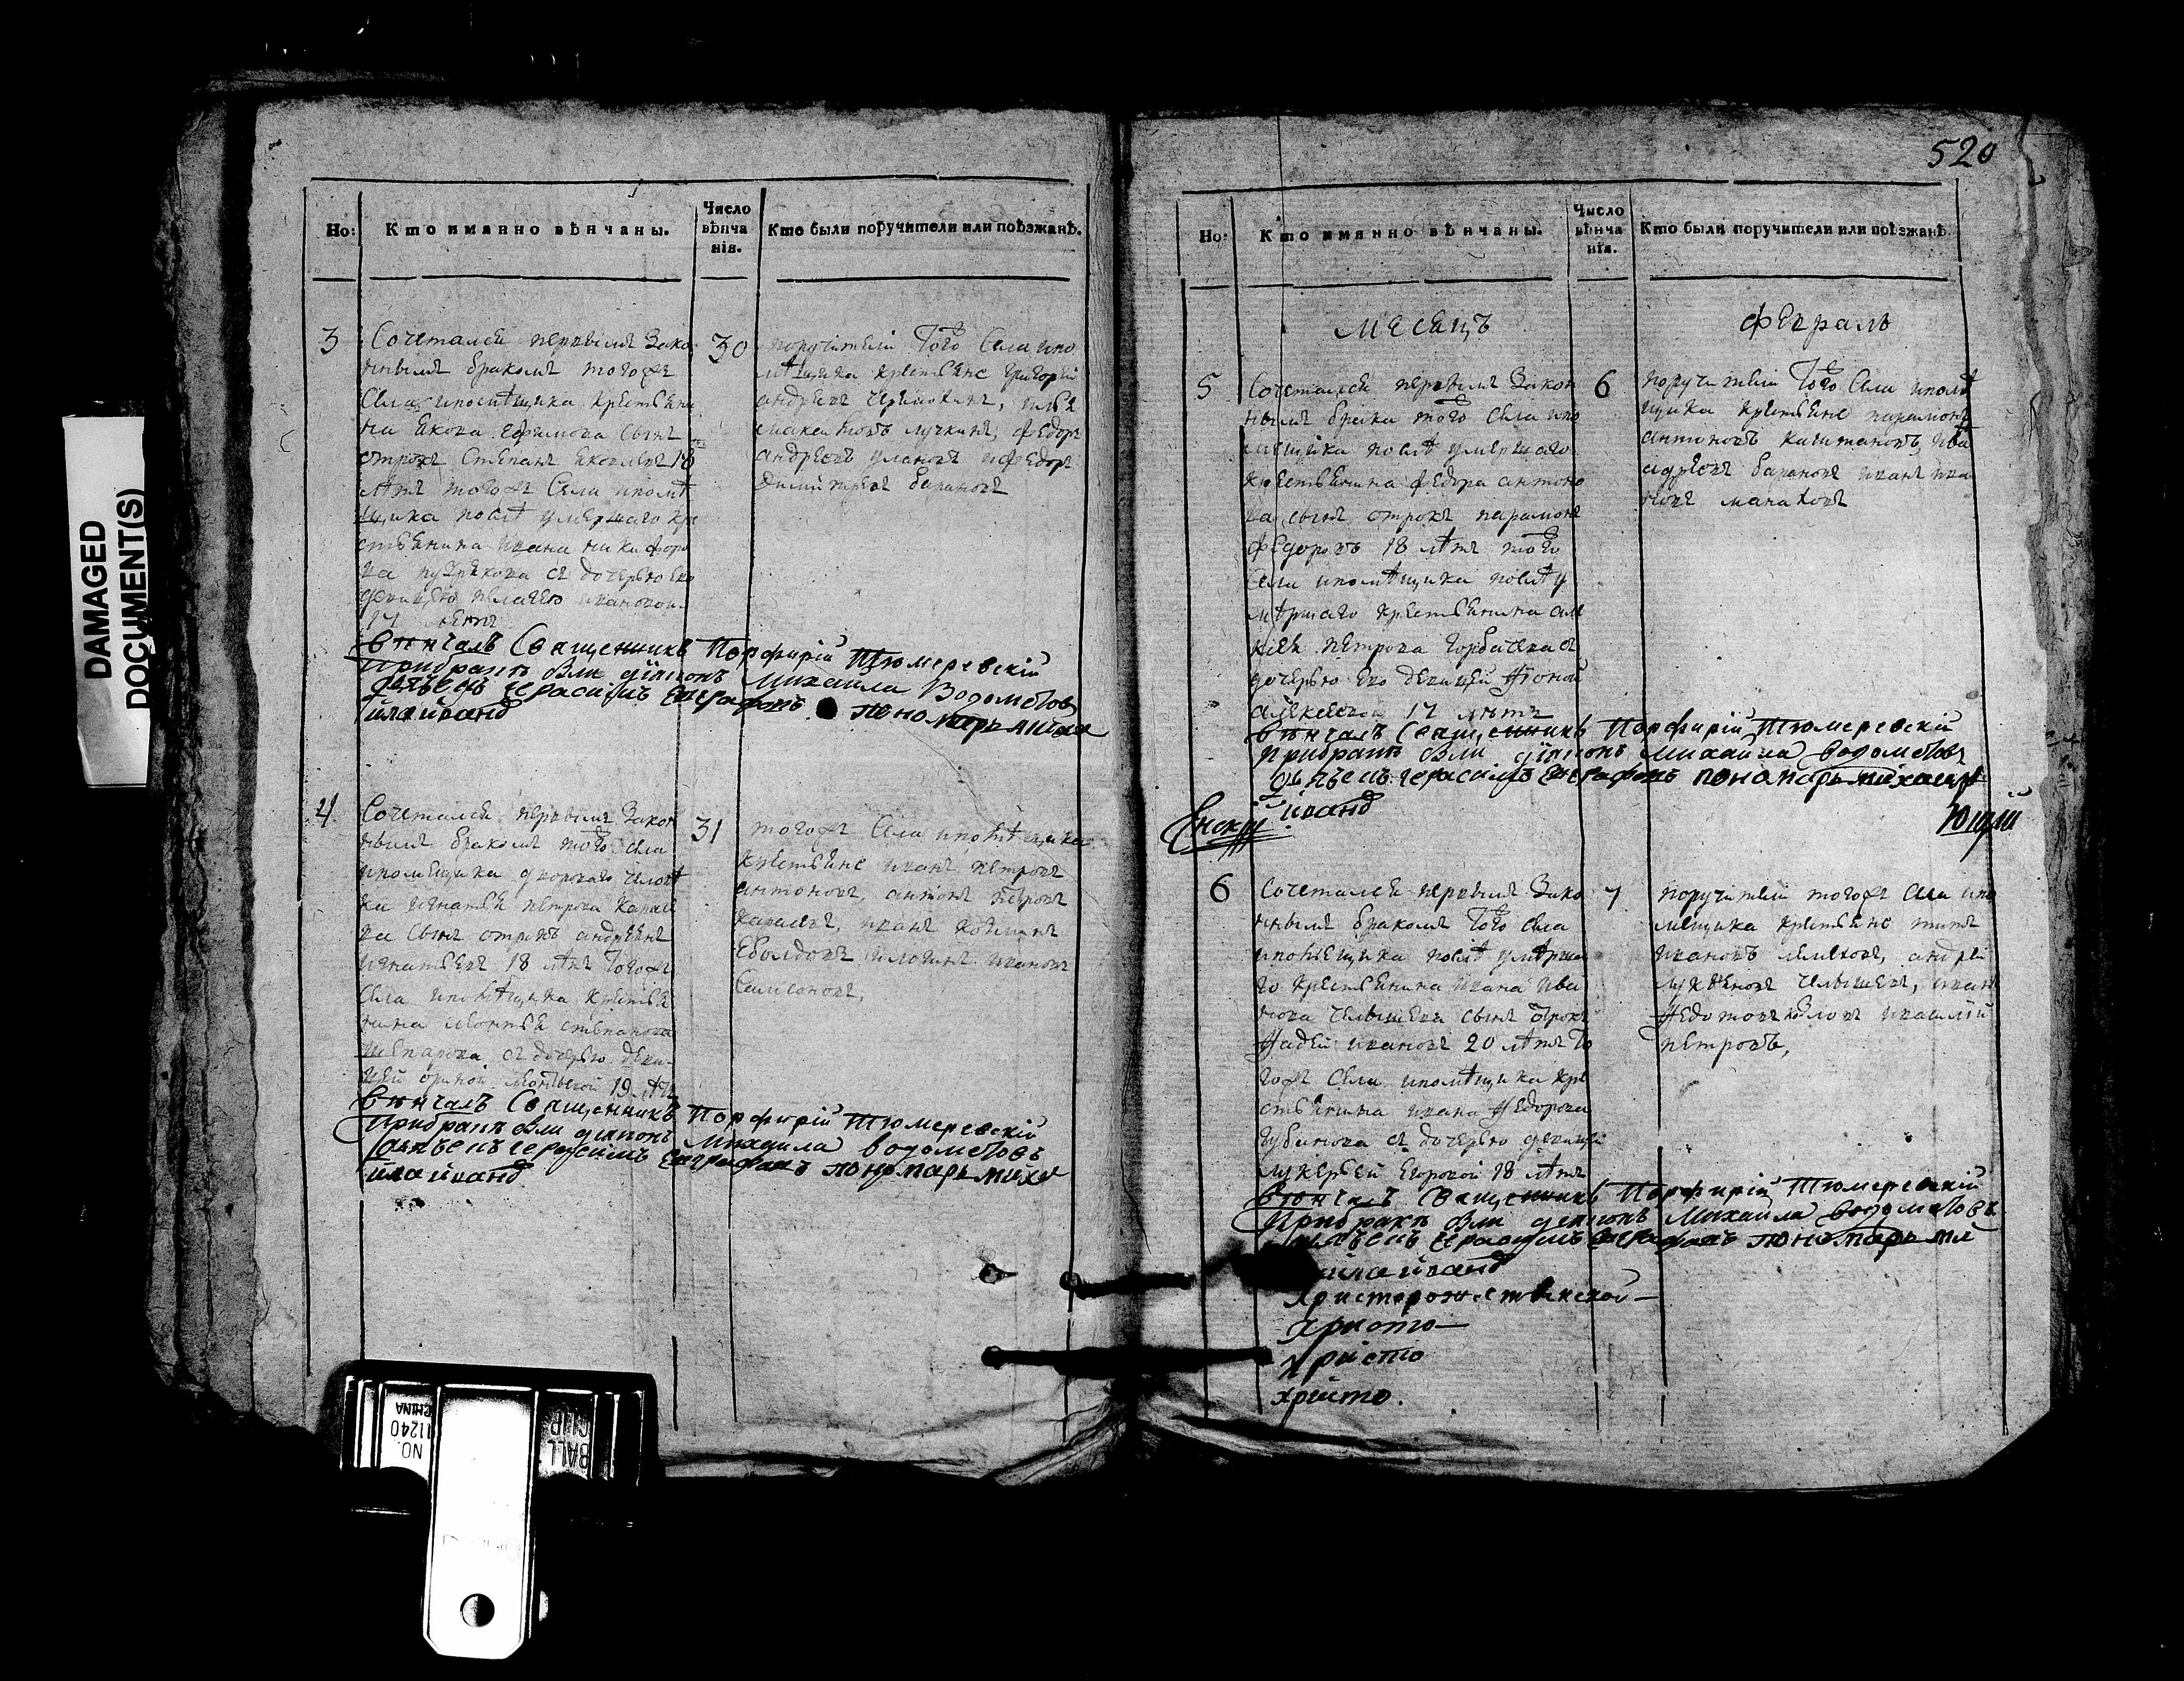 520
Но:
Кто имянно вѣнчаны.
Число вѣнча нія.
Кто были поручители или поѣзжанѣ.
3
Сочетался первымъ Зако
ннымъ бракомъ тогожъ
Села
крестьяни
на Якова Ефимова сынъ
отрокъ Степанъ Яковлевъ 18
лѣтъ тогожъ Села
щика послѣ умершаго кре
стьянина Ивана Никифоро
ва
съ дочерью ево
девицею Пелагею Ивановой
17 летъ
30
поручители того Села ипо
мѣщика крестьяне Григорей
андреевъ
илья
Федоръ
андреевъ улановъ и Федоръ
Димитревъ барановъ
вѣнчалъ Священникъ Порфирій Тюмеревскій
Прибракѣ были діяконъ Михаила Водометовъ
дьячекъ Герасимъ Евграфовъ пономарь
ила ивановъ
4
Сочетался первымъ Закон
нымъ бракомъ того села
ипомещика двороваго челове
ка игнатья Петрова Карае
ва сынъ отрокъ андреянъ
игнатьевъ 18 лѣтъ тогожъ
Села ипомѣщика крестья
нина леонтья степанова
съ дочерью деви
цей ориной леонтьевой 19 лѣтъ
31
тогожъ Села ипомѣщика
крестьяне иванъ петровъ
антоновъ, антонъ петровъ
Караевъ, иванъ
ивановъ
Самсоновъ,
вѣнчалъ Священникъ Порфирій Тюмеревскій
Прибракѣ были діяконъ Михаила водометовъ
дьячекъ Герасимъ Евграфовъ пономарь миха
ила ивановъ
Но:
Кто имянно вѣнчаны.
Число вѣнча нія.
Кто были поручители или поѣзжанѣ.
Месецъ
Февраль
5
Сочетался первымъ Закон
нымъ брака того села ипо
мѣщика послѣ умершаго
крестьянина Федора антоно
ва сынъ отрокъ парамонъ
Федоровъ 18 лѣтъ того
Села ипомѣщика послѣ у
мѣршаго крестьянина але
ксея петрова Горбачева съ
дочерью ево девицей
алексеевой 17 лѣтъ
6
поручители того Села ипомѣ
щика крестьяне парамонъ
антоновъ капитановъ, ива
андреевъ барановъ иванъ ива
новъ манаховъ
вѣнчалъ Священникъ Порфирій Тюмеревскій
Прибракѣ были діяконъ Михаила водометовъ
дьячекъ Герасимъ Евграфовъ пономарь михаила
ивановъ
6
Сочетался первымъ Зако
ннымъ бракомъ того села
ипомещика послѣ умѣрша
го крестьянина ивана ива
нова челышева сынъ отрокъ
Фадей ивановъ 20 лѣтъ то
гожъ Села ипомѣщика кре
стьянина ивана Федорова
Губанова съ дочерью девицей
лукерьей Егоровой 18 лѣтъ
7
поручители тогожъ Села ипо
мещика крестьяне титъ
ивановъ
андрей
лукьяновъ челышевъ, иванъ
Федотовъ
петровъ,
вѣнчалъ Священникъ Порфирій Тюмеревскій
Прибракѣ были діяконъ Михаила водометовъ
дьячекъ Герасимъ Евграфовъ пономарь ми
хаила ивановъ
христорожественской
христо
христо
христо.
DAMAGED
DOCUMENT(S)
BALL
CLIP
NO.
11240
CHINA